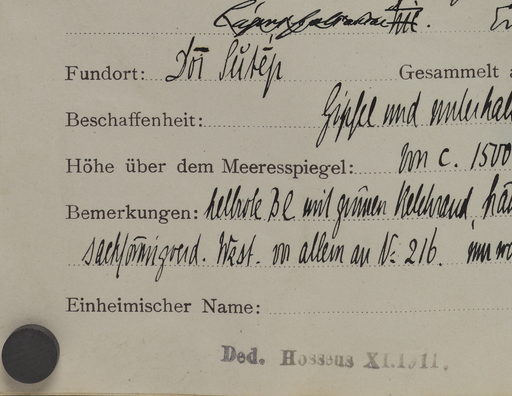 Fundort: Doi Sutép Gesammelt a
Beschaffenheit: Gipfel und unterhal
Höhe über dem Meeresspiegel: von c. 1500
Bemerkungen: hellrote Bl mit grünen Kelchrand, hä
sackförmig West. vor allem an N: 216. nur
Einheimischer Name:
Ded. Hosseus XI.1911.